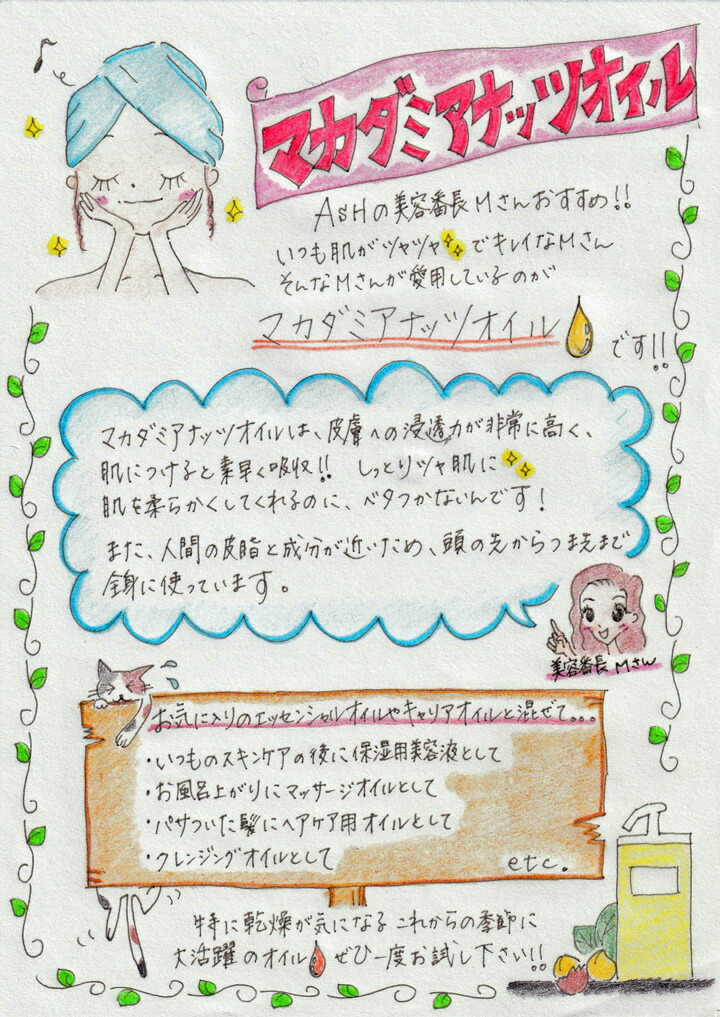 マカダミアナッツオイル
AsHの美容番長Mさんおすすめ!!
いつも肌がツヤツヤでキレイなMさん
そんなMさんが愛用しているのが
マカダミアナッツオイル
です!!
マカダミアナッツオイルは、皮膚への浸透力が非常に高く、
肌につけると素早く吸収!! しっとりツヤ肌に
肌を柔らかくしてくれるのに、ベタつかないんです!
また、人間の皮脂と成分が近いため、頭の先からつま先まで
全身に使っています。
美容番長Mさん
お気に入りのエッセンシャルオイルやキャリアオイルと混ぜて...
・いつものスキンケアの後に保湿用美容液として
・お風呂上がりにマッサージオイルとして
・パサついた髪にヘアケア用オイルとして
・クレンジングオイルとして
etc.
特に乾燥が気になるこれからの季節に
大活躍のオイルぜひ一度お試し下さい!!